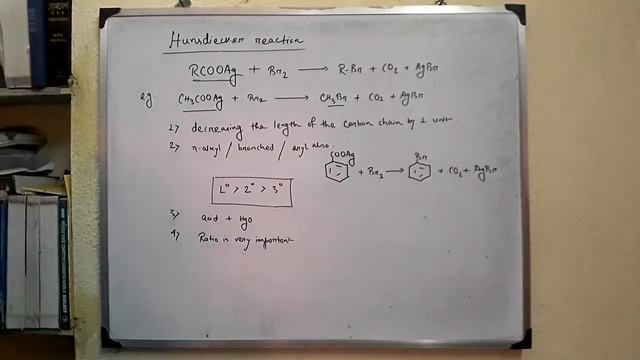 Hunsdiecker reaction
RCOOAg + Br2 ⟶ R-Br + CO2 + AgBr
eg. CH3COOAg + Br2 ⟶ CH3Br + CO2 + AgBr
1) decreasing the length of the carbon chain by 1 unit.
2) n-alkyl / branched / aryl also.
COOAg + Br2 ⟶ Br + CO2 + AgBr
1° > 2° > 3°
3) acid + HgO
4) Ratio is very important